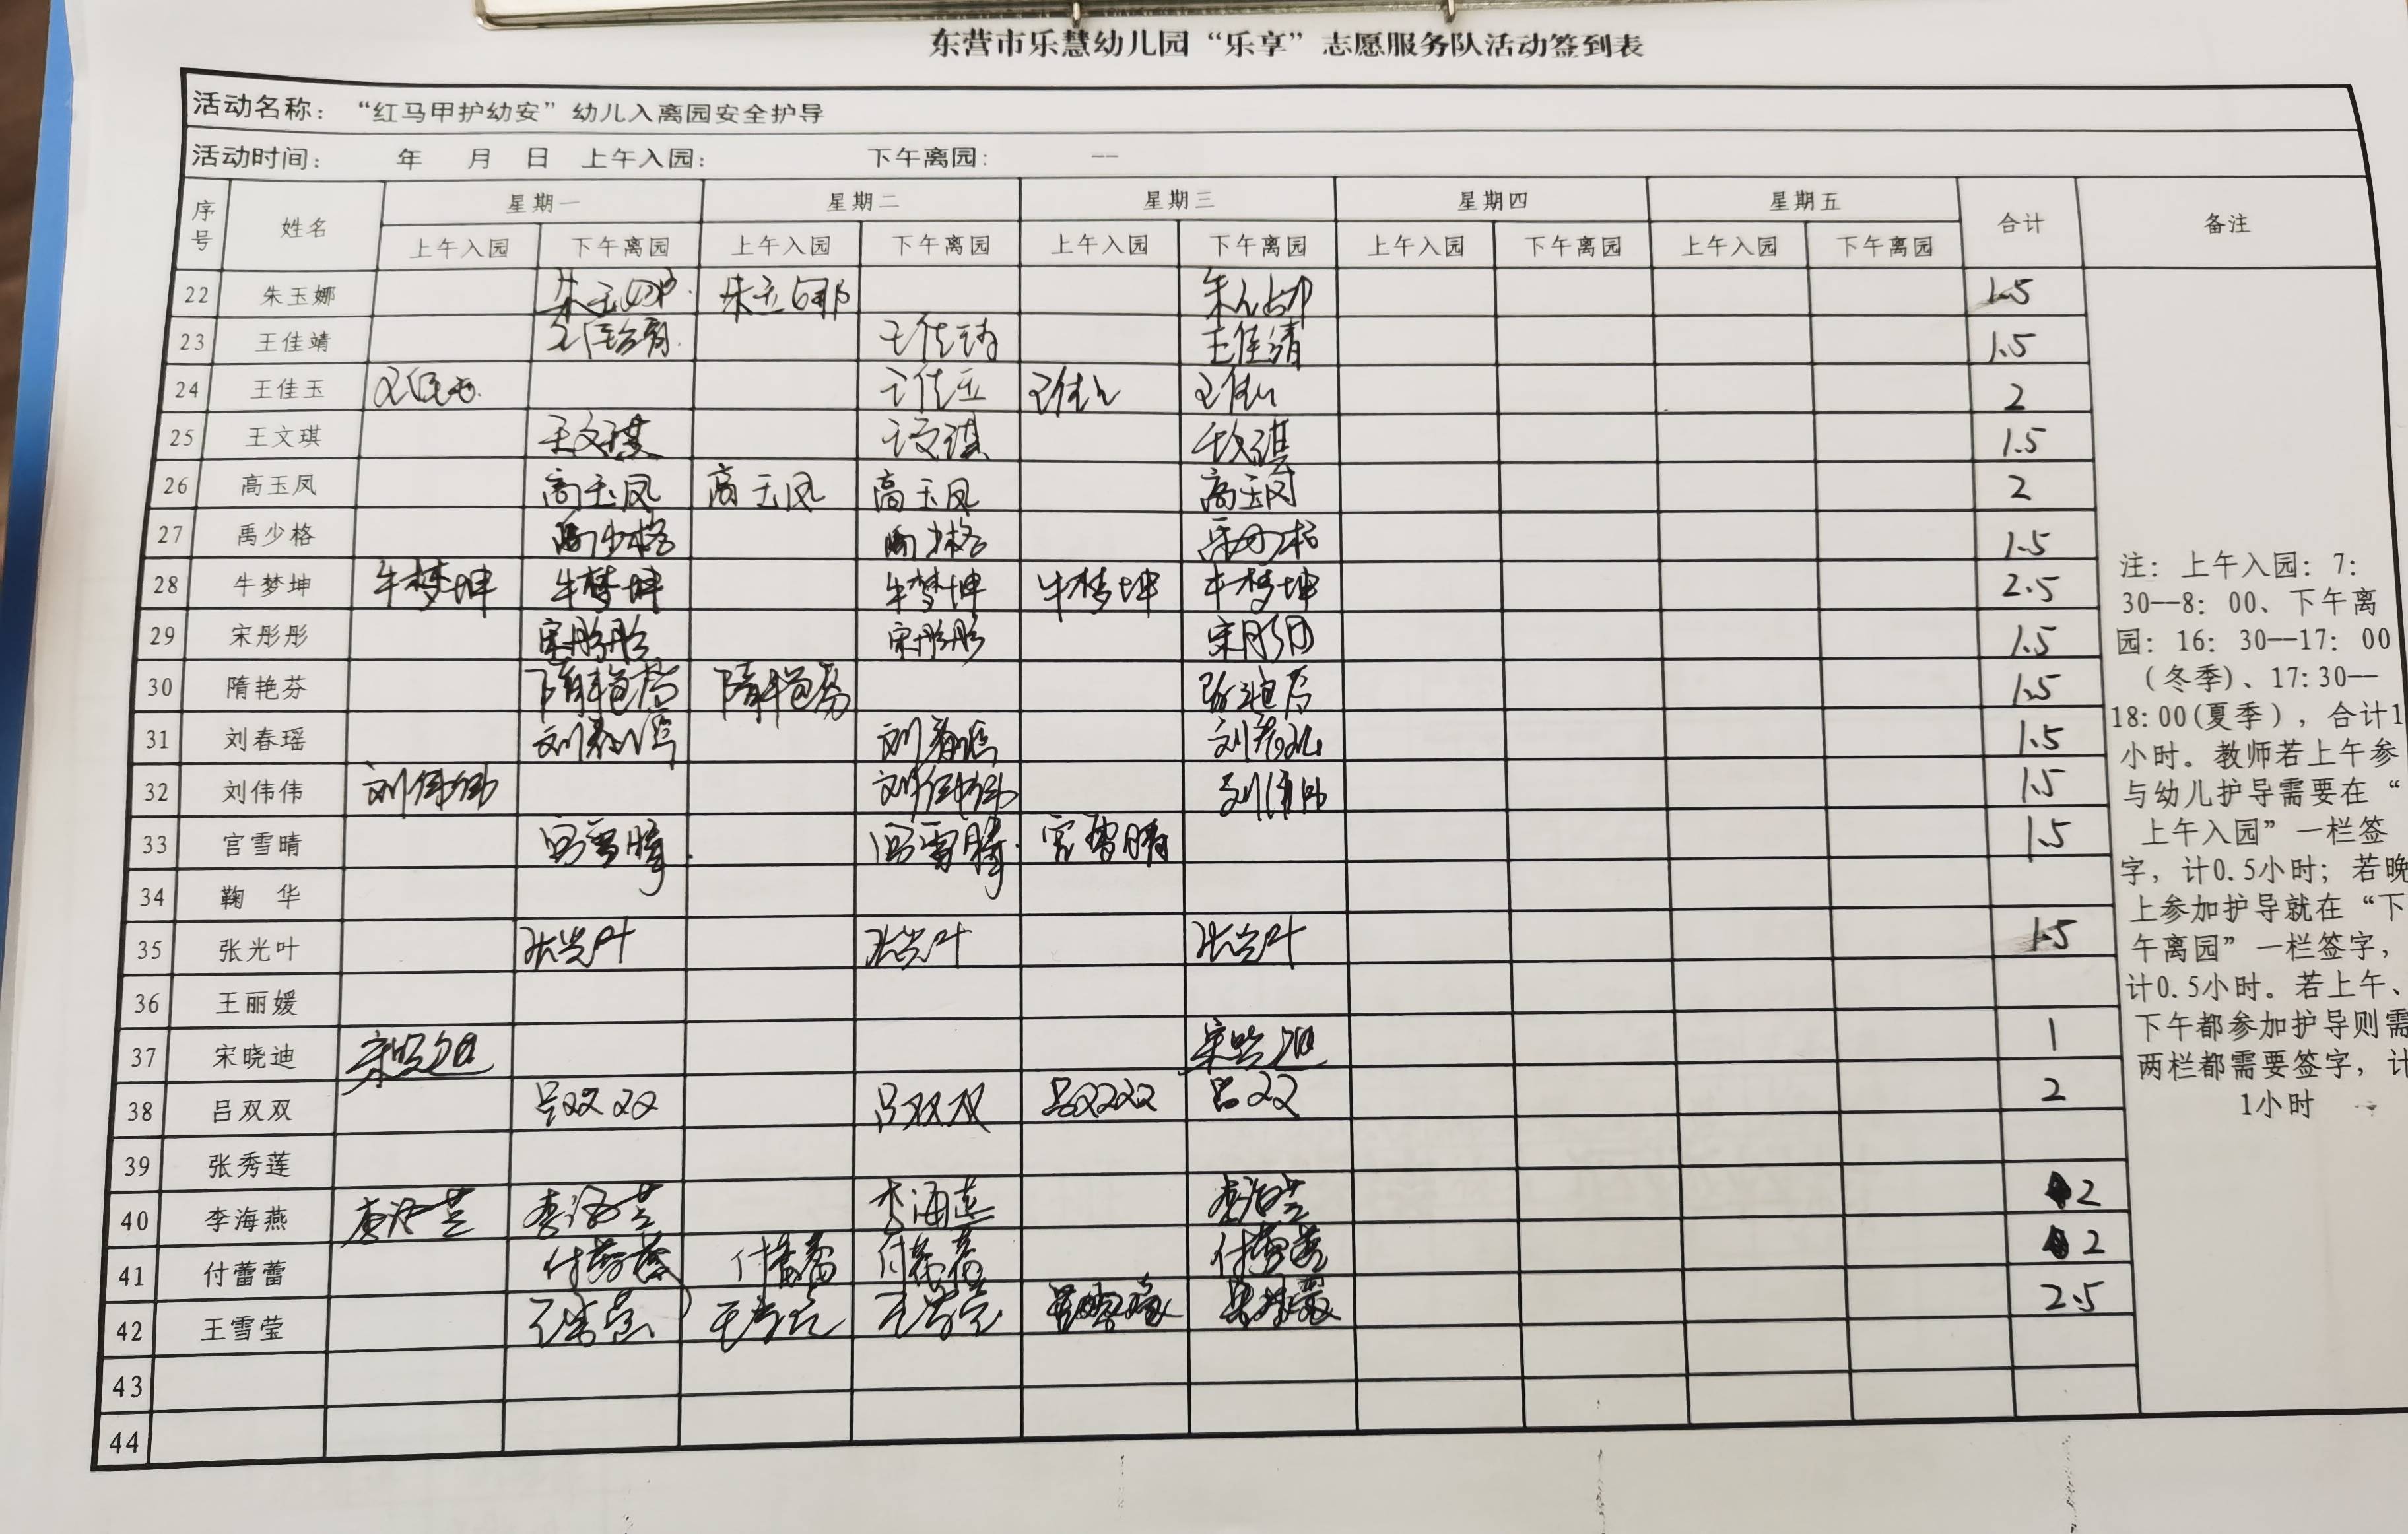 东营市乐慧幼儿园“乐享”志愿服务队活动签到表
活动名称：“红马甲护幼安”幼儿入离园安全护导
活动时间： 年 月 日 上午入园： 下午离园： —
序号 姓名 星期一 星期二 星期三 星期四 星期五 合计 备注
上午入园 下午离园 上午入园 下午离园 上午入园 下午离园 上午入园 下午离园 上午入园 下午离园
22 朱玉娜 朱玉娜 朱玉娜 1.5
23 王佳靖 王佳靖 王佳靖 王佳靖 1.5
24 王佳玉 王佳玉 王佳玉 王佳玉 王佳玉 2
25 王文琪 王文琪 王文琪 王文琪 1.5
26 高玉凤 高玉凤 高玉凤 高玉凤 高玉凤 2
27 禹少格 禹少格 禹少格 1.5
28 牛梦坤 牛梦坤 牛梦坤 牛梦坤 牛梦坤 牛梦坤 2.5
29 宋彤彤 宋彤彤 宋彤彤 宋彤彤 1.5
30 隋艳芬 隋艳芬 隋艳芬 1.5
31 刘春瑶 刘春瑶 刘春瑶 刘春瑶 1.5
32 刘伟伟 刘伟伟 刘伟伟 刘伟伟 1.5
33 宫雪晴 宫雪晴 宫雪晴 宫雪晴 1.5
34 鞠 华
35 张光叶 张光叶 张光叶 张光叶 1.5
36 王丽媛
37 宋晓迪 宋晓迪 宋晓迪 1
38 吕双双 吕双双 吕双双 吕双双 吕双 2
39 张秀莲
40 李海燕 李海燕 李海燕 李海燕 李海燕 2
41 付蕾蕾 付蕾蕾 付蕾蕾 付蕾蕾 付蕾蕾 2
42 王雪莹 王雪莹 王雪莹 王雪莹 2.5
43
44
注：上午入园：7：
30--8：00、下午离
园：16：30--17：00
（冬季）、17:30--
18:00(夏季），合计1
小时。教师若上午参
与幼儿护导需要在“
上午入园”一栏签
字，计0.5小时；若晚
上参加护导就在“下
午离园”一栏签字，
计0.5小时。若上午、
下午都参加护导则需
两栏都需要签字，计
1小时